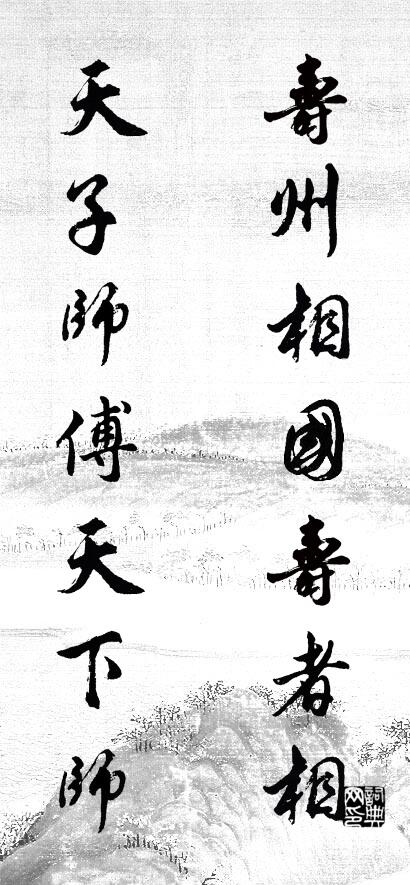 壽州相國壽者相
天子師傅天下師
詞典
网